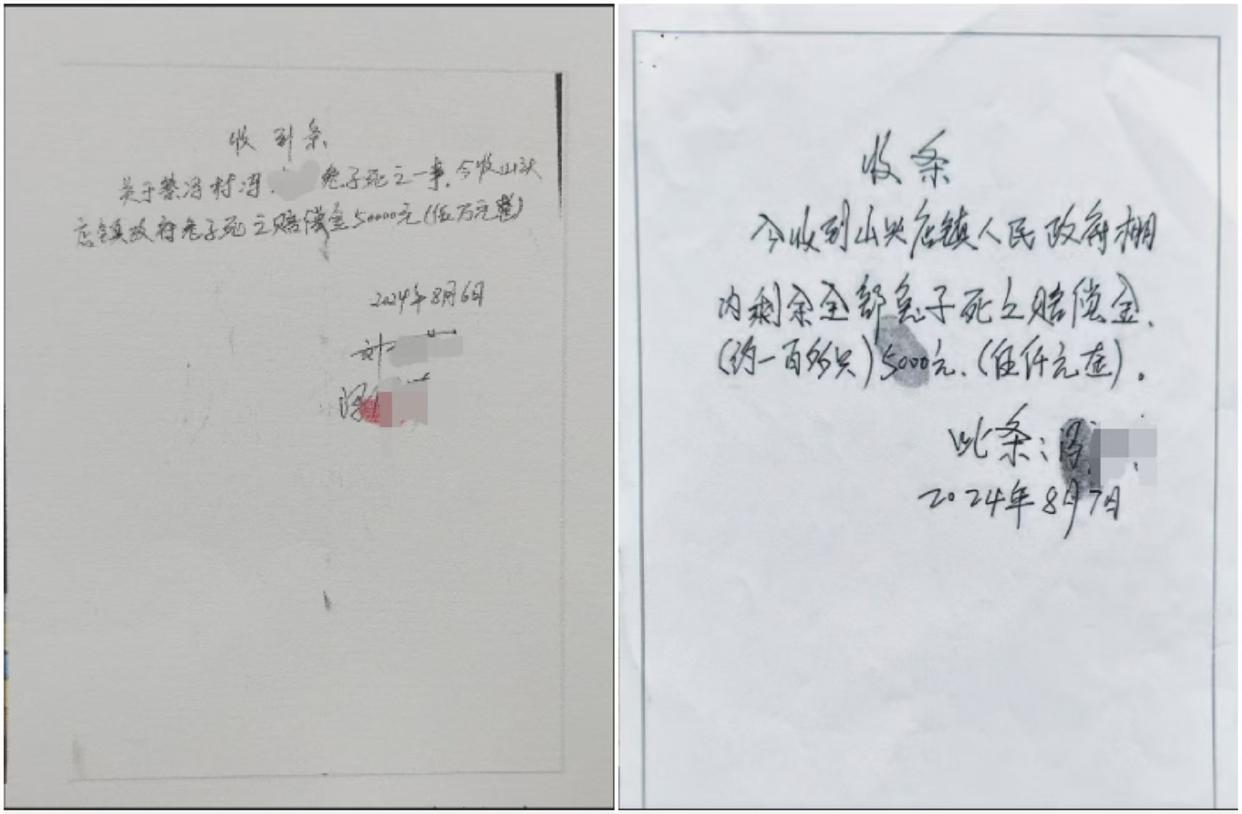 收到条
关于蔡冯村冯 兔子死之一事，今收山头
店镇政府兔子死之赔偿金50000元（伍万元整）
2024年8月6日
刘
冯
收条
今收到山头店镇人民政府棚
内剩余全部兔子死之赔偿金，
（约一百多只）5000元、（伍仟元整）。
此条：冯
2024年8月7日